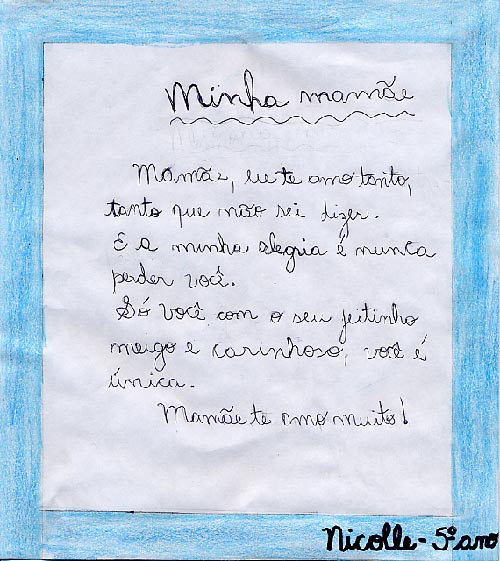 Minha mamãe
Mamãe, eu te amo tanto,
tanto que não sei dizer.
E a minha alegria é nunca
perder você.
Só você com o seu jeitinho
meigo e carinhoso, você é
única.
Mamãe te amo muito!
Nicolle - 5º ano